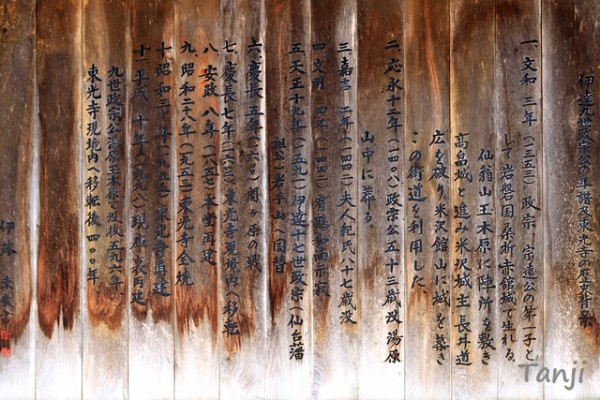 伊達九世政宗公の年譜及東光寺の歴史抄録
一、文和 三年(一三五三)政宗、宗遠公の第一子と
して岩磐国桑折赤館城で生れる。
仙翁山玉木原に陣所を敷き
高畠城と進み米沢城主長井道
広を破り、米沢舘山に城を築き
この街道を利用した
二、応永十二年(一四〇八)政宗公五十三歳没 湯原
山中に葬る。
三、嘉吉 二年(一四四二)夫人紀氏八十七歳没
四、文明
五、天正十九年(一五九一)伊達十七世政宗(仙台藩
祖公)岩手山へ国替
六、慶長五年(一六〇〇)関ヶ原の戦
七、慶長七年(一六〇二)東光寺現境内へ移転
八、安政 八年(一八五七)本堂再建
九、昭和二十八年(一九五三)東光寺全焼
十、昭和三十年(一九五五)東光寺再建
十一、平成 十年(一九九八)現庫裏再建
九世政宗公湯原玉木原に没後五九六年
東光寺現境内へ移転後四〇〇年
伊藤
Tanji